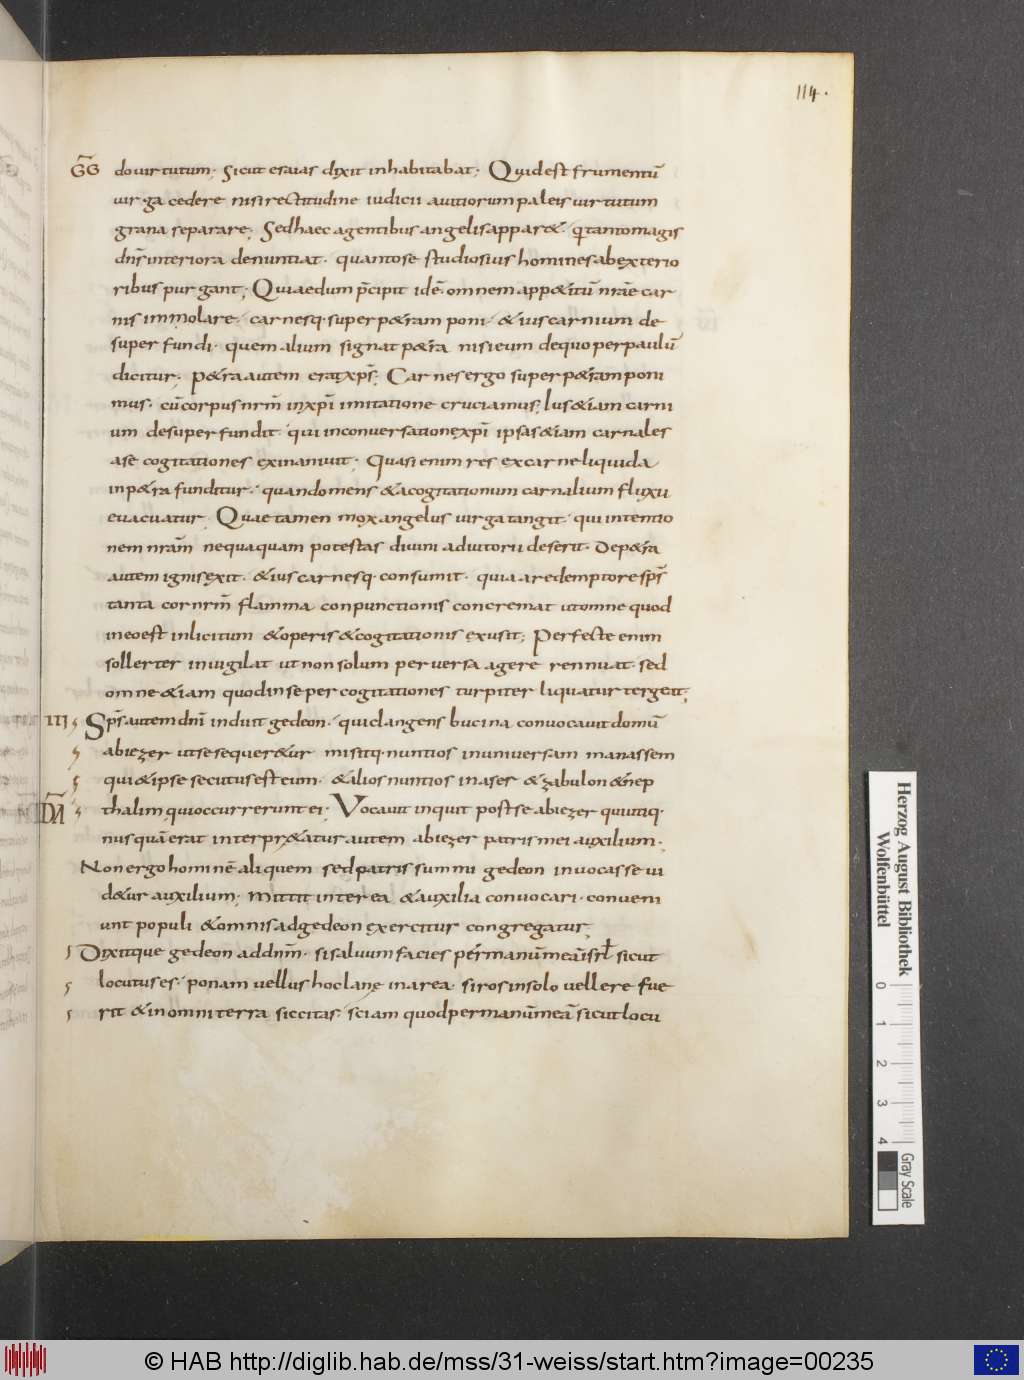 114.
GG do uirtutum; Sicut esaias dixit inhabitabat; Quid est frumentū
uirga cedere nisi rectitudine iudicii auitiorum paleis uirtutum
grana separare; Sed haec agentibus angelis apparet. q tanto magis
dn̄s interiora denuntiat. quanto se studiosius homines ab exterio
ribus purgant; Qui aedum p̄cipit idē omnem appetitū n̄ræ car
nis immolare. carnesq. super petram poni. & ius carnium de
super fundi. quem alium signat petra nisi eum de quo per paulū
dicitur. petra autem erat xp̄s; Carnes ergo super petram poni
mus. cū corpus nr̄m in xp̄i imitatione cruciamus, Ius & iam carni
um desuper fundit. qui in conuersatione xp̄i ipsas & iam carnales
a se cogitationes exinaniuit; Quasi enim res ex carne liquida
in petra funditur. quando mens & a cogitationum carnalium fluxu
euacuatur. Quae tamen mox angelus uirga tangit. qui intentio
nem nr̄am nequaquam potestas diuini adiutorii deserit. De petra
autem ignis exit. & ius carnesq. consumit. quia a redemptore sp̄s
tanta cor nr̄m flamma conpunctionis concremat ut omne quod
in eo est inlicitum & operis & cogitationis exusit; Perfecte enim
sollerter inuigilat ut non solum peruersa agere rennuat. sed
omne & iam quod in se per cogitationes turpiter liquatur tergeit;
III Sp̄s autem dn̄i induit gedeon. qui clangens bucina conuocauit domū
abiezer ut se sequeretur misitq. nuntios in uniuersam manassem
qui & ipse secutus est eum. & alios nuntios in aser & zabulon & nep
DN̄ thalim qui occurrerunt ei; Vocauit inquit post se abiezer quintiq.
nusquā erat interpretatur autem abiezer patris mei auxilium;
Non ergo hominē aliquem sed patris summi gedeon inuocasse ui
detur auxilium; Mittit interea & auxilia conuocari. conueni
unt populi & omnis ad gedeon exercitur congregatur;
Dixitque gedeon ad dn̄m. si saluum facies per manū meā isrl̄ sicut
locutus es. ponam uellus hoc lane in area. si ros in solo uellere fue
rit & in omni terra siccitas. sciam quod per manū meā sicut locu
Herzog August Bibliothek
Wolfenbüttel
0 1 2 3 4
Gray Scale
© HAB http://diglib.hab.de/mss/31-weiss/start.htm?image=00235